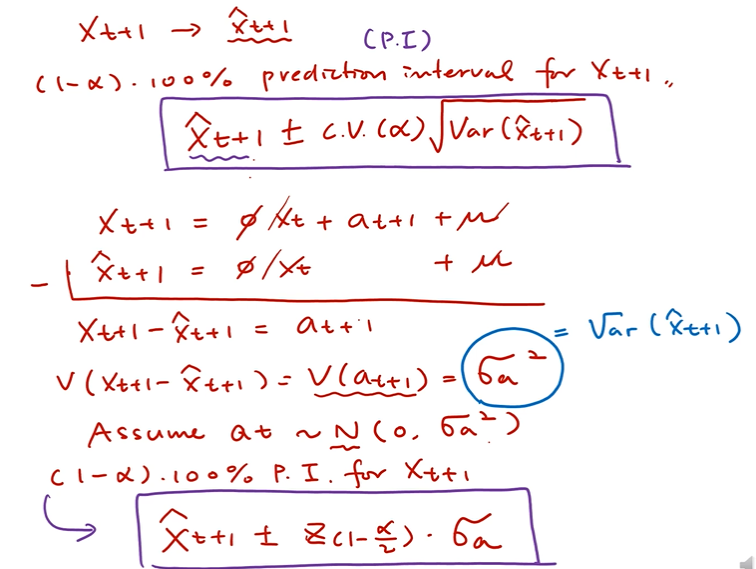 Xt+1 → X̂t+1 (P.I)
(1-α)·100% prediction interval for Xt+1,,
X̂t+1 ± C.V.(α)√Var(X̂t+1)
Xt+1 = φXt + at+1 + μ
- X̂t+1 = φXt + μ
Xt+1 - X̂t+1 = at+1
V(Xt+1 - X̂t+1) = V(at+1) = σa² = Var(X̂t+1)
Assume at ~ N(0, σa²)
(1-α)·100% P.I. for Xt+1
X̂t+1 ± Z(1-α/2)·σa